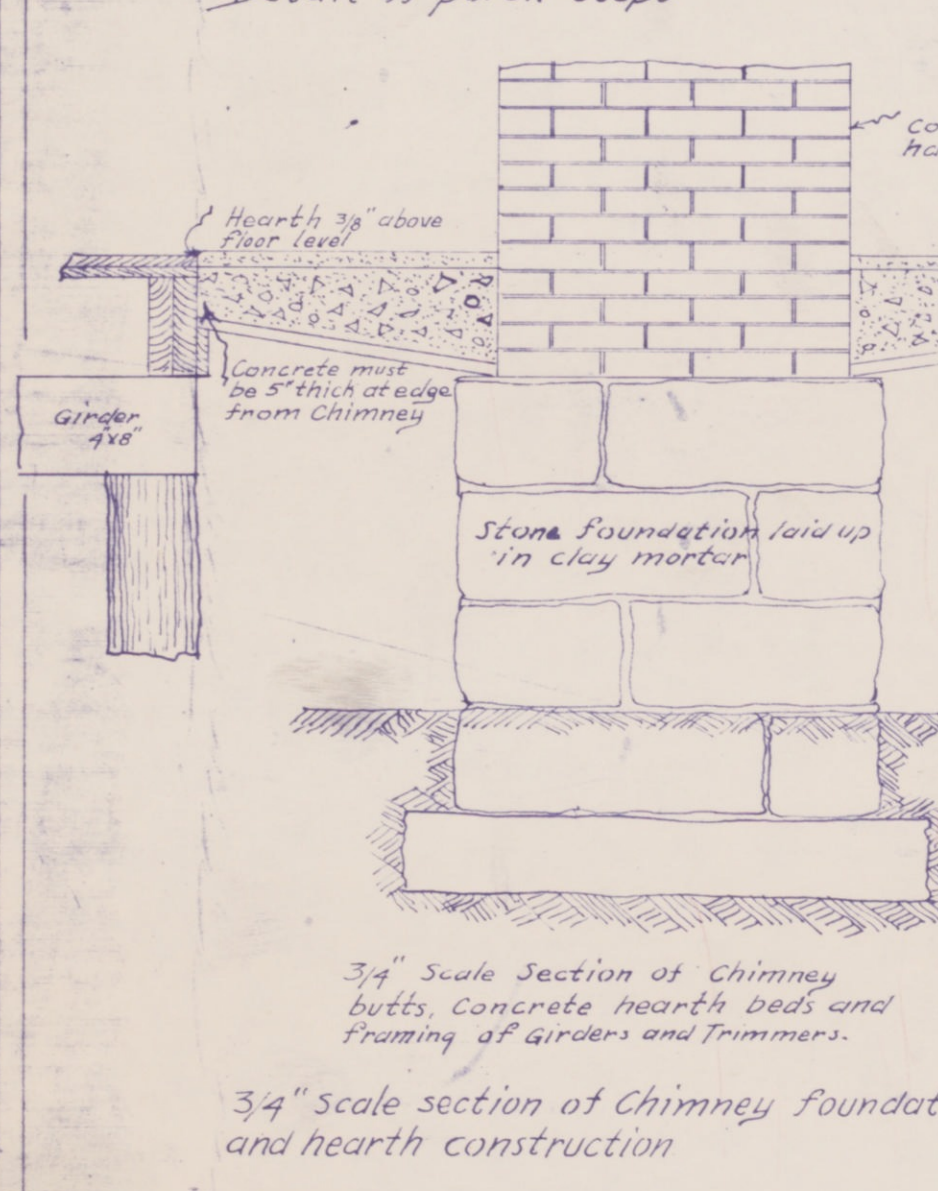 Detail of porch steps
co
ha
Hearth 3/8" above
floor level
Concrete must
be 5" thick at edge
from Chimney
Girder
4"x8"
Stone foundation laid up
in clay mortar
3/4" Scale Section of Chimney
butts, Concrete hearth beds and
framing of Girders and Trimmers.
3/4" Scale section of Chimney foundat
and hearth construction